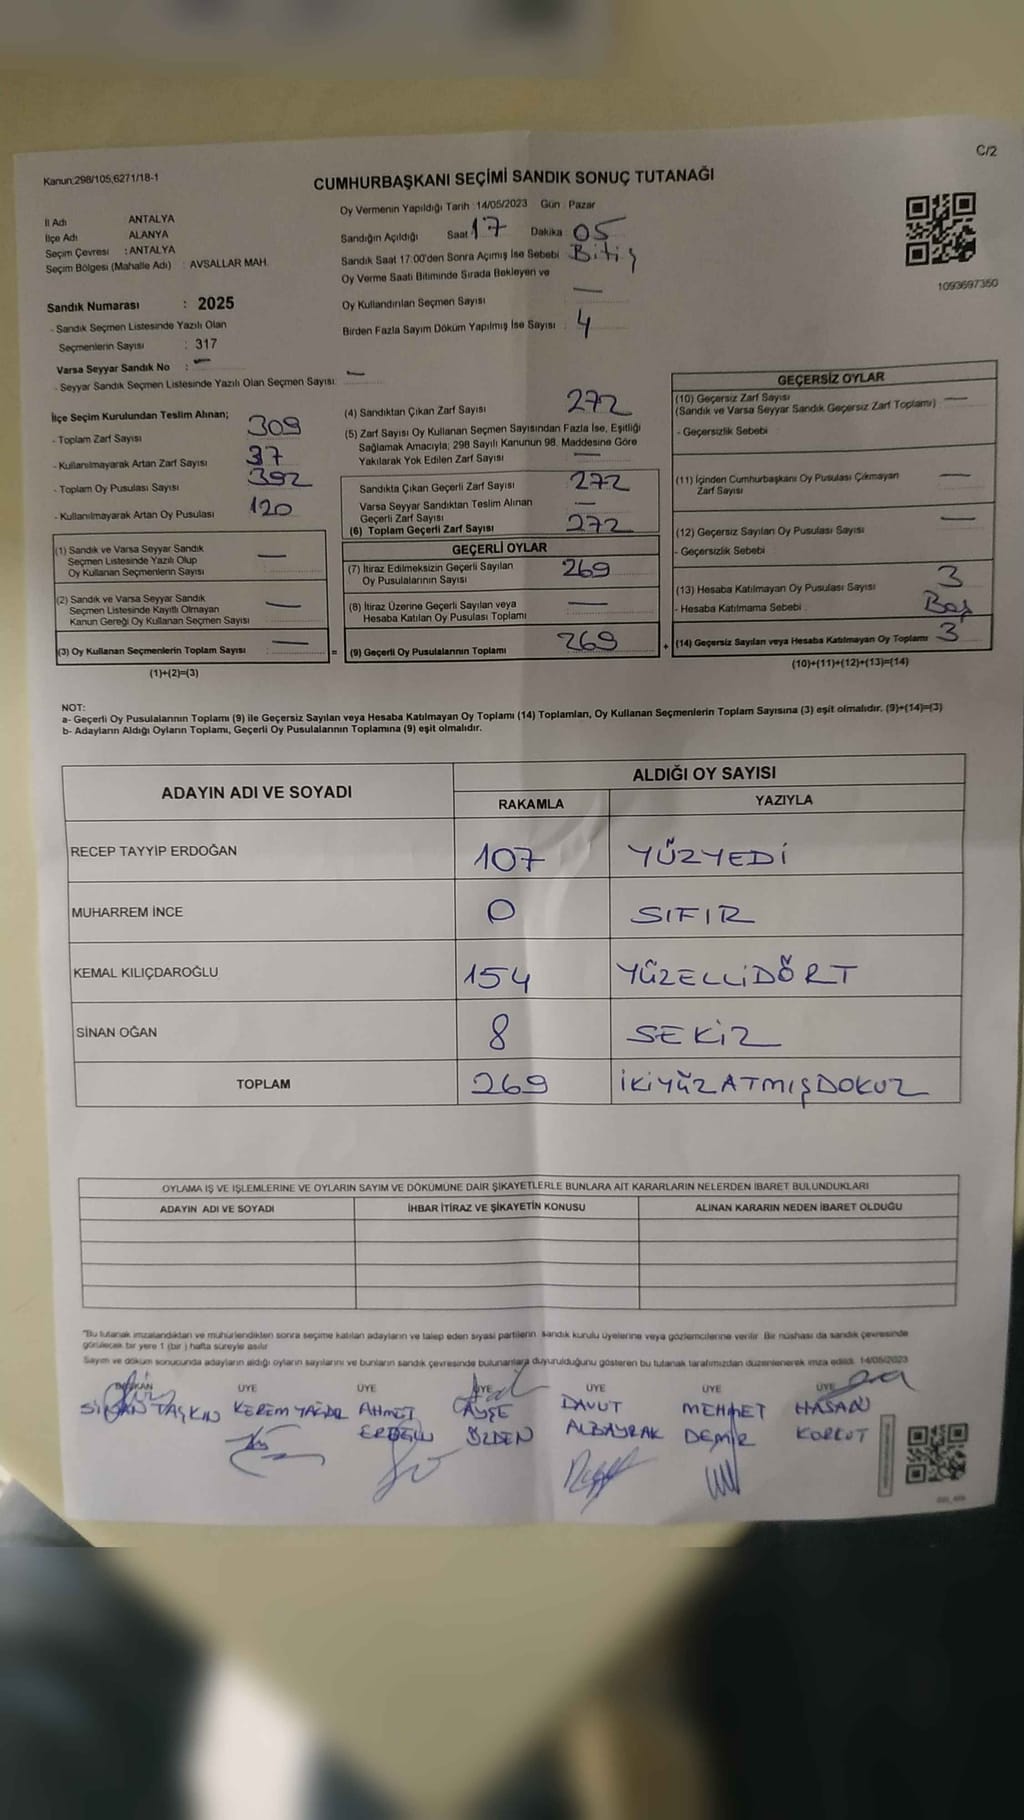 C/2
Kanun:298/105,6271/18-1
CUMHURBAŞKANI SEÇİMİ SANDIK SONUÇ TUTANAĞI
İl Adı ANTALYA
İlçe Adı ALANYA
Seçim Çevresi : ANTALYA
Seçim Bölgesi (Mahalle Adı) : AVSALLAR MAH.
Oy Vermenin Yapıldığı Tarih : 14/05/2023 Gün : Pazar
Sandığın Açıldığı Saat 17 Dakika 05
Sandık Saat 17:00'den Sonra Açımış İse Sebebi Bitiş
Oy Verme Saati Bitiminde Sırada Bekleyen ve
Oy Kullandırılan Seçmen Sayısı —
Birden Fazla Sayım Döküm Yapılmış İse Sayısı : 4
1093697350
Sandık Numarası : 2025
- Sandık Seçmen Listesinde Yazılı Olan
Seçmenlerin Sayısı : 317
Varsa Seyyar Sandık No : —
- Seyyar Sandık Seçmen Listesinde Yazılı Olan Seçmen Sayısı: —
İlçe Seçim Kurulundan Teslim Alınan;
- Toplam Zarf Sayısı 309
- Kullanılmayarak Artan Zarf Sayısı 37
- Toplam Oy Pusulası Sayısı 392
- Kullanılmayarak Artan Oy Pusulası 120
(1) Sandık ve Varsa Seyyar Sandık
Seçmen Listesinde Yazılı Olup
Oy Kullanan Seçmenlerin Sayısı —
(2) Sandık ve Varsa Seyyar Sandık
Seçmen Listesinde Kayıtlı Olmayan
Kanun Gereği Oy Kullanan Seçmen Sayısı —
(3) Oy Kullanan Seçmenlerin Toplam Sayısı : — =
(1)+(2)=(3)
(4) Sandıktan Çıkan Zarf Sayısı 272
(5) Zarf Sayısı Oy Kullanan Seçmen Sayısından Fazla İse, Eşitliği
Sağlamak Amacıyla; 298 Sayılı Kanunun 98. Maddesine Göre
Yakılarak Yok Edilen Zarf Sayısı —
Sandıkta Çıkan Geçerli Zarf Sayısı 272
Varsa Seyyar Sandıktan Teslim Alınan
Geçerli Zarf Sayısı —
(6) Toplam Geçerli Zarf Sayısı 272
GEÇERLİ OYLAR
(7) İtiraz Edilmeksizin Geçerli Sayılan
Oy Pusulalarının Sayısı 269
(8) İtiraz Üzerine Geçerli Sayılan veya
Hesaba Katılan Oy Pusulası Toplamı —
(9) Geçerli Oy Pusulalarının Toplamı 269 +
GEÇERSİZ OYLAR
(10) Geçersiz Zarf Sayısı
(Sandık ve Varsa Seyyar Sandık Geçersiz Zarf Toplamı) —
- Geçersizlik Sebebi
(11) İçinden Cumhurbaşkanı Oy Pusulası Çıkmayan
Zarf Sayısı —
(12) Geçersiz Sayılan Oy Pusulası Sayısı —
- Geçersizlik Sebebi
(13) Hesaba Katılmayan Oy Pusulası Sayısı 3
- Hesaba Katılmama Sebebi : Boş
(14) Geçersiz Sayılan veya Hesaba Katılmayan Oy Toplamı 3
(10)+(11)+(12)+(13)=(14)
NOT:
a- Geçerli Oy Pusulalarının Toplamı (9) ile Geçersiz Sayılan veya Hesaba Katılmayan Oy Toplamı (14) Toplamları, Oy Kullanan Seçmenlerin Toplam Sayısına (3) eşit olmalıdır. (9)+(14)=(3)
b- Adayların Aldığı Oyların Toplamı, Geçerli Oy Pusulalarının Toplamına (9) eşit olmalıdır.
ADAYIN ADI VE SOYADI ALDIĞI OY SAYISI
RAKAMLA YAZIYLA
RECEP TAYYİP ERDOĞAN 107 YÜZYEDİ
MUHARREM İNCE 0 SIFIR
KEMAL KILIÇDAROĞLU 154 YÜZELLİDÖRT
SİNAN OĞAN 8 SEKİZ
TOPLAM 269 İKİYÜZATMIŞDOKUZ
OYLAMA İŞ VE İŞLEMLERİNE VE OYLARIN SAYIM VE DÖKÜMÜNE DAİR ŞİKAYETLERLE BUNLARA AİT KARARLARIN NELERDEN İBARET BULUNDUKLARI
ADAYIN ADI VE SOYADI İHBAR İTİRAZ VE ŞİKAYETİN KONUSU ALINAN KARARIN NEDEN İBARET OLDUĞU
"Bu tutanak imzalandıktan ve mühürlendikten sonra seçime katılan adayların ve talep eden siyasi partilerin sandık kurulu üyelerine veya gözlemcilerine verilir. Bir nüshası da sandık çevresinde
görülecek bir yere 1 (bir) hafta süreyle asılır
Sayım ve döküm sonucunda adayların aldığı oyların sayılarını ve bunların sandık çevresinde bulunanlara duyurulduğunu gösteren bu tutanak tarafımızdan düzenlenerek imza edildi. 14/05/2023
BAŞKAN ÜYE ÜYE ÜYE ÜYE ÜYE ÜYE
SİNAN TAŞKIN KEREM AHMET AYŞE DAVUT MEHMET HASAN
ÖZDEN ALBAYRAK DEMİR KORKUT